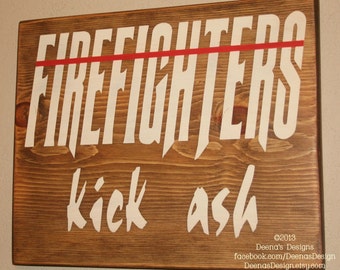 FIREFIGHTERS
kick ash
©2013
Deena's Designs
facebook.com/DeenasDesign
DeenasDesign.etsy.com